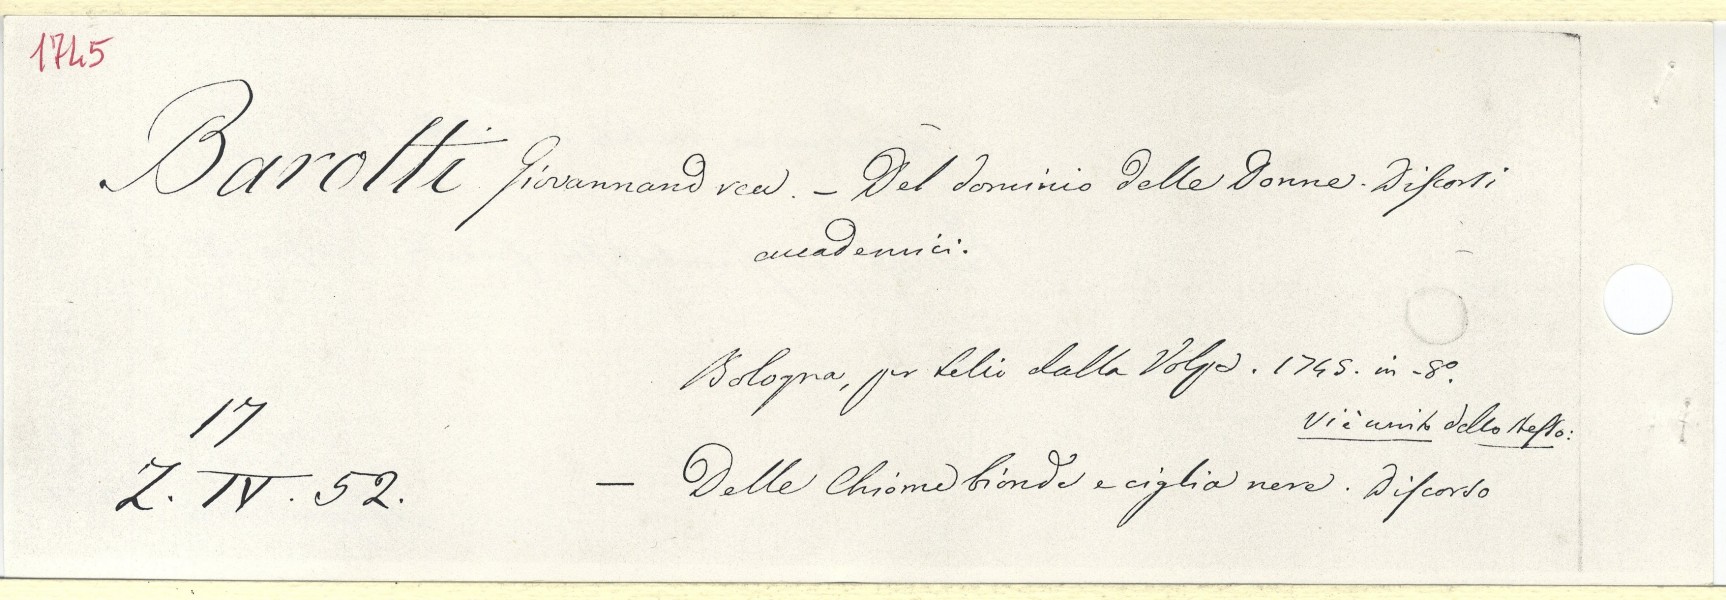 1745
Barotti Giovannandrea. – Del dominio delle Donne. Discorsi
accademici.
Bologna, per Lelio dalla Volpe. 1745. in -8º.
17
Vi è unito dello stesso:
Z. IV. 52.
— Delle Chiome bionde e ciglia nere. Discorso